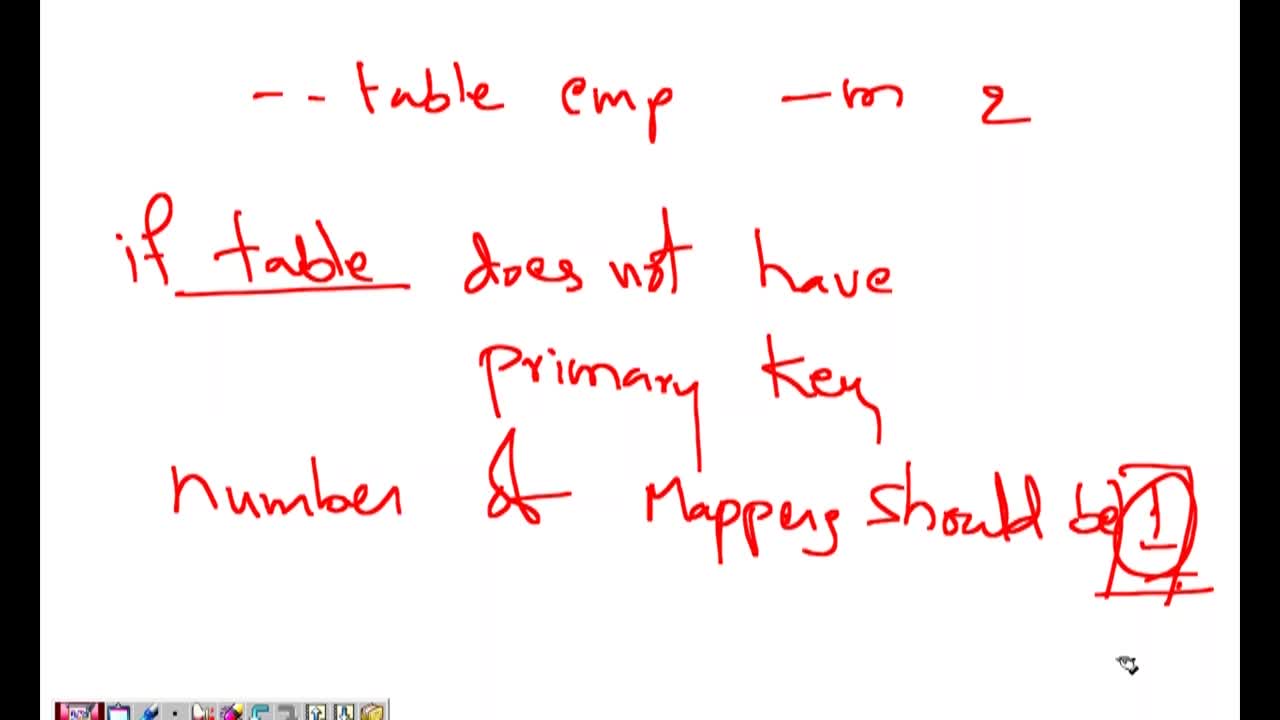 -- table emp -m 2
if table does not have
primary key
number of Mappers should be 1